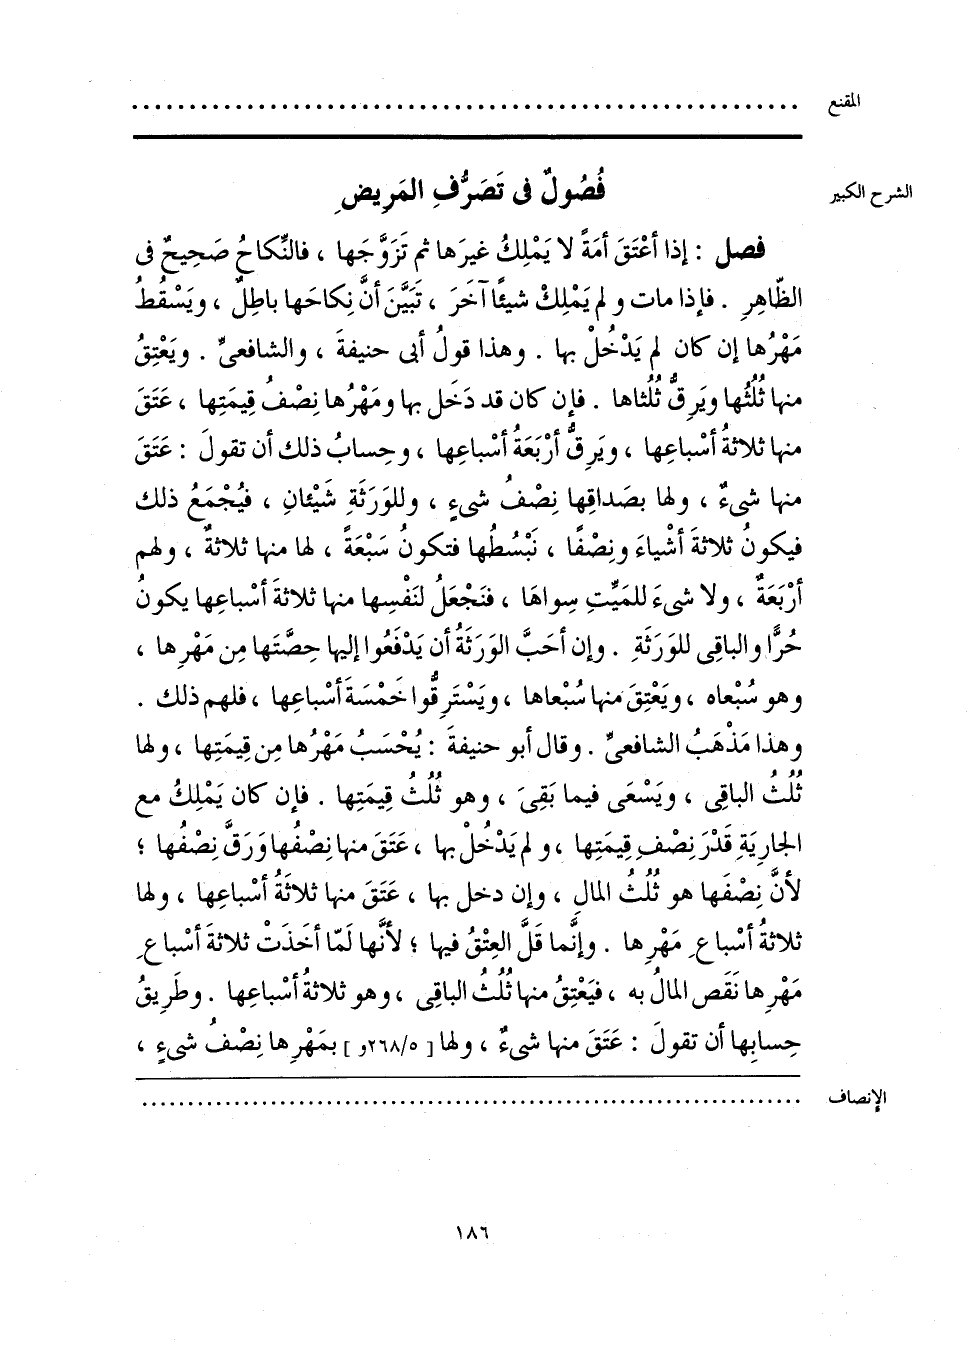 المقنع ............................................................
الشرح الكبير
فُصُولٌ فى تَصَرُّفِ المَرِيضِ
فصل : إذا أعْتَقَ أمَةً لا يَمْلِكُ غيرَها ثم تَزَوَّجَها ، فالنِّكاحُ صَحِيحٌ فى
الظّاهِرِ . فإذا مات ولم يَمْلِكْ شيئًا آخَرَ ، تَبَيَّنَ أنَّ نِكاحَها باطِلٌ ، ويَسْقُطُ
مَهْرُها إن كان لم يَدْخُلْ بها . وهذا قولُ أبى حنيفةَ ، والشافعىِّ . ويَعْتِقُ
منها ثُلُثُها ويَرِقُّ ثُلُثاها . فإن كان قد دَخَل بها ومَهْرُها نِصْفُ قِيمَتِها ، عَتَقَ
منها ثلاثةُ أسْباعِها ، ويَرِقُّ أرْبَعَةُ أسْباعِها ، وحِسابُ ذلك أن تقولَ : عَتَقَ
منها شىءٌ ، ولها بصَداقِها نِصْفُ شىءٍ ، وللوَرَثَةِ شَيْئان ، فيُجْمَعُ ذلك
فيكونُ ثلاثةَ أشْياءَ ونِصْفًا ، نَبْسُطُها فتكونُ سَبْعَةً ، لها منها ثلاثةٌ ، ولهم
أرْبَعَةٌ ، ولا شىءَ للمَيِّتِ سِواهَا ، فنَجْعَلُ لنَفْسِها منها ثلاثةَ أسْباعِها يكونُ
حُرًّا والباقى للوَرَثَةِ . وإن أحَبَّ الوَرَثَةُ أن يَدْفَعُوا إليها حِصَّتَها مِن مَهْرِها ،
وهو سُبْعاه ، ويَعْتِقَ منها سُبْعاها ، ويَسْتَرِقُّوا خَمْسَةَ أسْباعِها ، فلهم ذلك .
وهذا مَذْهَبُ الشافعىِّ . وقال أبو حنيفةَ : يُحْسَبُ مَهْرُها مِن قِيمَتِها ، ولها
ثُلُثُ الباقِى ، ويَسْعَى فيما بَقِىَ ، وهو ثُلُثُ قِيمَتِها . فإن كان يَمْلِكُ مع
الجارِيَةِ قَدْرَ نِصْفِ قِيمَتِها ، ولم يَدْخُلْ بها ، عَتَقَ منها نِصْفُها وَرَقَّ نِصْفُها ؛
لأنَّ نِصْفَها هو ثُلُثُ المالِ ، وإن دخل بها ، عَتَقَ منها ثلاثَةُ أسْباعِها ، ولها
ثلاثةُ أسْباعِ مَهْرِها . وإنَّما قَلَّ العِتْقُ فيها ؛ لأنَّها لَمّا أخَذَتْ ثلاثةَ أسْباعِ
مَهْرِها نَقَص المالُ به ، فيَعْتِقُ منها ثُلُثُ الباقِى ، وهو ثلاثةُ أسْباعِها . وطَرِيقُ
حِسابِها أن تقولَ : عَتَقَ منها شىءٌ ، ولها [ ٢٦٨/٥و ] بمَهْرِها نِصْفُ شىءٍ ،
الإنصاف ............................................................
١٨٦